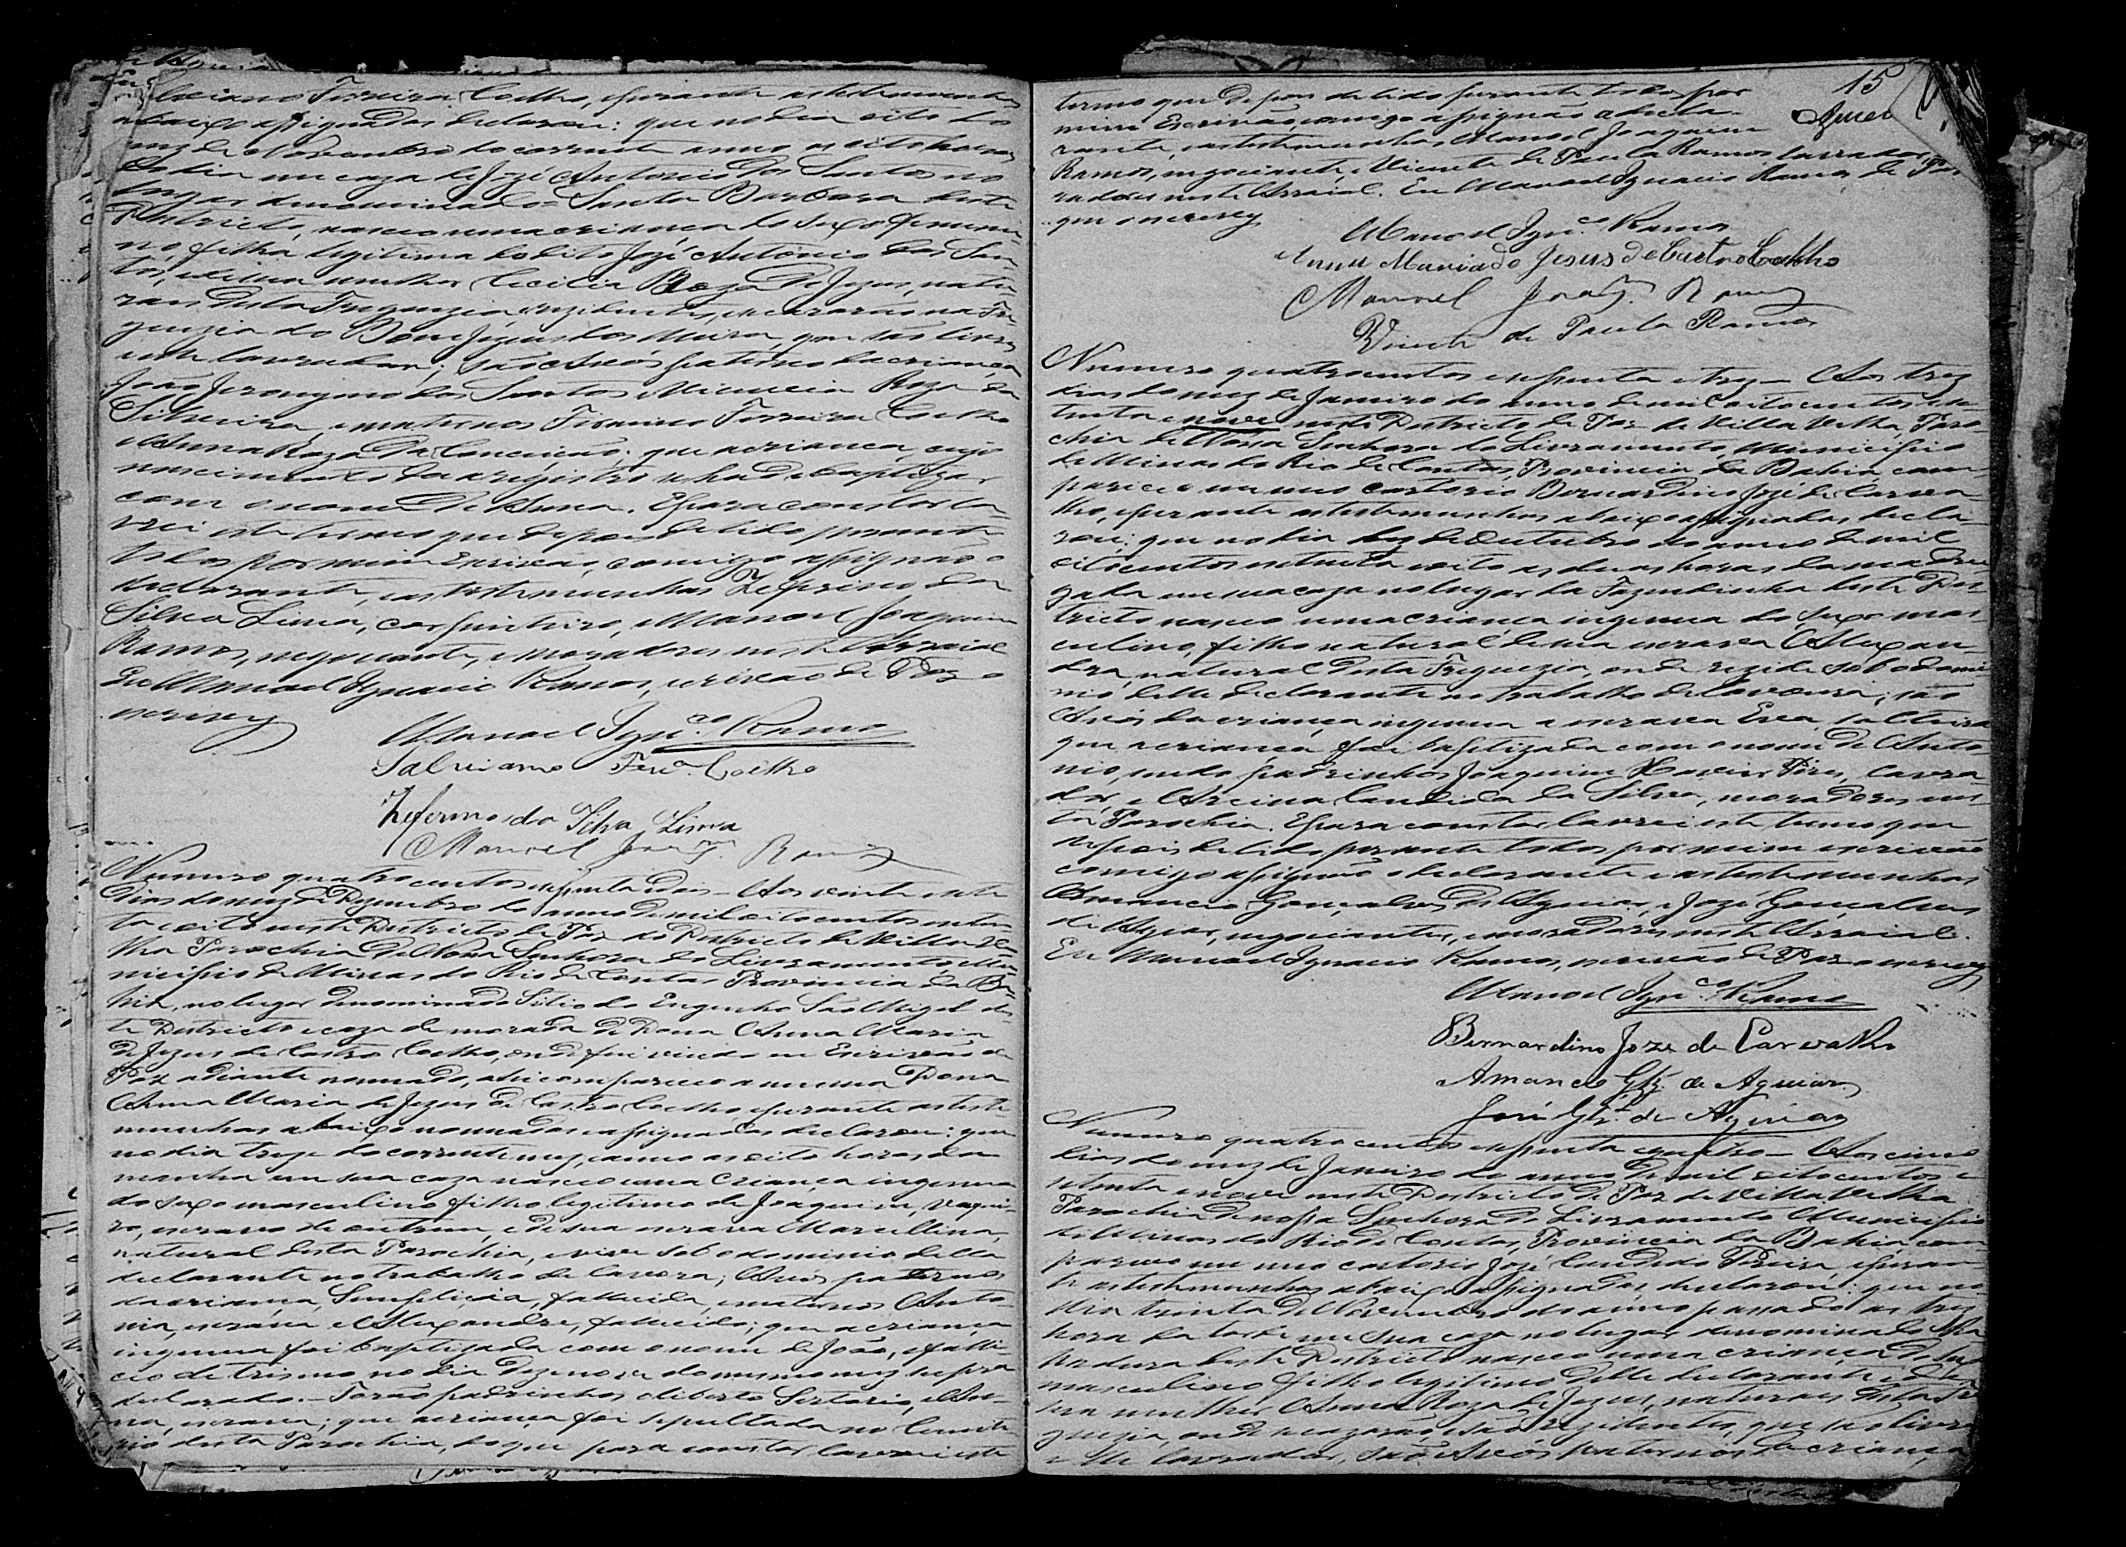 Ferreira Coelho, e perante as testemunhas
abaixo assignadas declarou: que no dia oito do
mez de Novembro do corrente anno as oito horas
do dia em caza de José Antonio dos Santos no
lugar denominado Santa Barbara deste
Districto, nasceo uma criança do sexo femini-
no, filha legitima do dito José Antonio dos San-
tos, e de sua mulher Cecilia Roza de Jezus, natu-
raes desta Freguezia, rezidentes, e cazarão na Fre-
guezia do Bom Jezus dos Meira, que são livres
e lavrador; são Avós paterno da criança
João Jeronymo dos Santos e Roza da
Silveira, e maternos Firmino Ferreira Coelho
e Anna Roza da Conceição; que a criança, cujo
nascimento da a registro se ha de baptizar
com o nome de Anna. E para constar la-
vrei este termo que depois de lido perante
todos por mim Escrivão, comigo assignão o
declarante, e as testemunhas Zeferino da
Silva Lima, carpinteiro, e Manoel Joaquim
Ramos, negociante, e moradores neste Arraial
Eu Manoel Ignacio Ramos, escrivão de Paz o
escrevy
Manoel Ign.co Ramos
Salviano Ferr.a Coelho
Zeferino da Silva Lima
Manoel Joaq.m Ramos
Numero quatro centos e setenta e dois — Aos vinte e sete
dias do mez de Dezembro do anno de mil oito centos seten-
ta e oito neste Districto de Paz do Districto de Villa Ve-
lha Parochia de Nossa Senhora do Livramento, Mu-
nicipio de Minas do Rio de Contas Provincia da Ba-
hia, no lugar denominado Sitio do Engenho São Migel des-
te Districto e caza de morada de Dona Anna Maria
de Jezus de Castro Coelho, onde fui vindo eu Escrivão de
Paz adiante nomeado, ahi compareceo a mesma Dona
Anna Maria de Jezus de Castro Coelho, e perante as teste-
munhas abaixo nomeadas e assignadas declarou: que
no dia treze do corrente mez, e anno as oito horas da
manhã em sua caza nasceo uma criança ingenua
do sexo masculino filho legitimo de Joaquim, vaquei-
ro, escravo de outrem, e de sua escrava Marcellina,
natural desta Parochia, e vive sob o dominio della
declarante no trabalho de lavoura; Avós paternos
da criança, Simplicia, fallecida, e maternos Anto-
nia, escrava e Alexandre, fallecido; que a criança
ingenua foi baptizada com o nome de João, e falle-
ceo de trismo no dia dezenove do mesmo mez supra
declarado. — Forão padrinhos eliberto Sertorio, e An-
na, escrava; que a criança foi sepultada no Cemite-
rio desta Parochia, do que para constar lavrei este
15
termo que depois de lido perante todos por
mim Escrivão, comigo assignão a decla-
rante, e as testemunhas Manoel Joaquim
Ramos, negociante e Vicente de Paula Ramos, lavrador, mo-
radores neste Arraial. Eu Manoel Ignacio Ramos, de Paz
que o escrevy
Manoel Ign.co Ramos
Anna Maria de Jesus de Castro Coelho
Manoel Joaq.m Ramos
Vicente de Paula Ramos
Numero quatrocentos e setenta e trez — Aos trez
dias do mez de Janeiro do anno de mil oito centos e se-
tenta e nove neste Districto de Paz de Villa Velha, Paro-
chia de Nossa Senhora do Livramento, Municipio
de Minas do Rio de Contas, Provincia da Bahia, com-
pareceo em meu cartorio Bernardino José de Carva-
lho, e perante as testemunhas abaixo assignadas, decla-
rou: que no dia dez de Outubro do anno de mil
oitocentos e setenta e oito as duas horas da madru-
gada em sua caza no lugar da Fazendinha deste Dis-
tricto nasceo uma criança ingenua do sexo mas-
culino, filho natural de sua escrava Alexan-
dra, natural desta Freguezia, onde rezide sob o domi-
nio delle declarante no trabalho de lavoura; são
Avós da criança ingenua a escrava Eva, solteira
que a criança foi baptizada com o nome de Anto-
nio, sendo padrinhos Joaquim Xavier Pires, lavra-
dor, e Alexina Candida da Silva, moradores nes-
ta Parochia. E para constar lavrei este termo que
depois de lido perante todos por mim escrivão
comigo assignão o declarante e as testemunhas
Amancio Gonçalves de Aguiar, e José Gonçalves
de Aguiar, negociantes, e moradores neste Arraial.
Eu Manoel Ignacio Ramos, escrivão de Paz o escrevy
Manoel Ign.co Ramos
Bernardino Joze de Carvalho
Amancio Glz. de Aguiar
José Glz. de Aguiar
Numero quatro centos e setenta e quatro — Aos cinco
dias do mez de Janeiro do anno de mil oito centos e
setenta e nove neste Districto de Paz de Villa Velha
Parochia de nossa Senhora do Livramento Municipio
de Minas do Rio de Contas, Provincia da Bahia com-
pareceo em meu cartorio José Candido Pereira, e peran-
te as testemunhas abaixo assignadas, declarou: que no
dia trinta de Novembro do anno passado as trez
hora da tarde em sua caza no lugar denominado
deste Districto nasceo uma criança do sexo
masculino filho legitimo delle declarante, e de
sua mulher Anna Roza de Jezus, naturaes desta Fre-
guezia, onde se cazarão e são rezidentes, que são livres
e elle lavrador, são Avós paternos da criança,